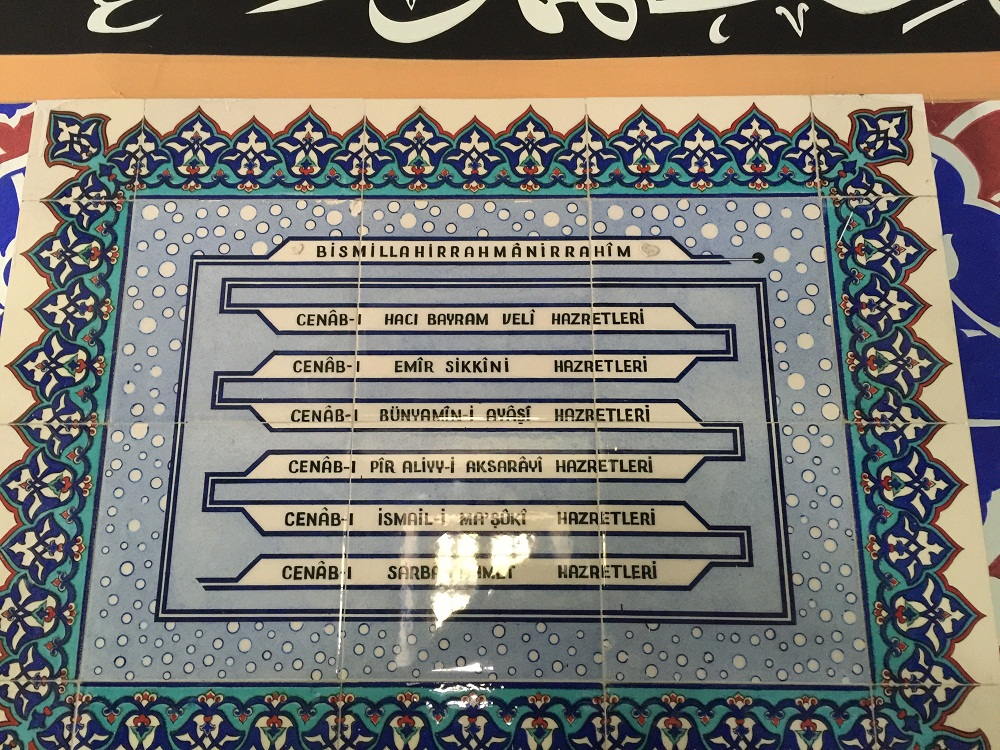 BİSMİLLAHİRRAHMÂNİRRAHÎM
CENÂB-I HACI BAYRAM VELÎ HAZRETLERİ
CENÂB-I EMÎR SİKKÎNİ HAZRETLERİ
CENÂB-I BÜNYAMÎN-İ AYÂŞÎ HAZRETLERİ
CENÂB-I PÎR ALİYY-İ AKSARÂYÎ HAZRETLERİ
CENÂB-I İSMAİL-İ MA'ŞÛKÎ HAZRETLERİ
CENÂB-I SARBAN AHMET HAZRETLERİ